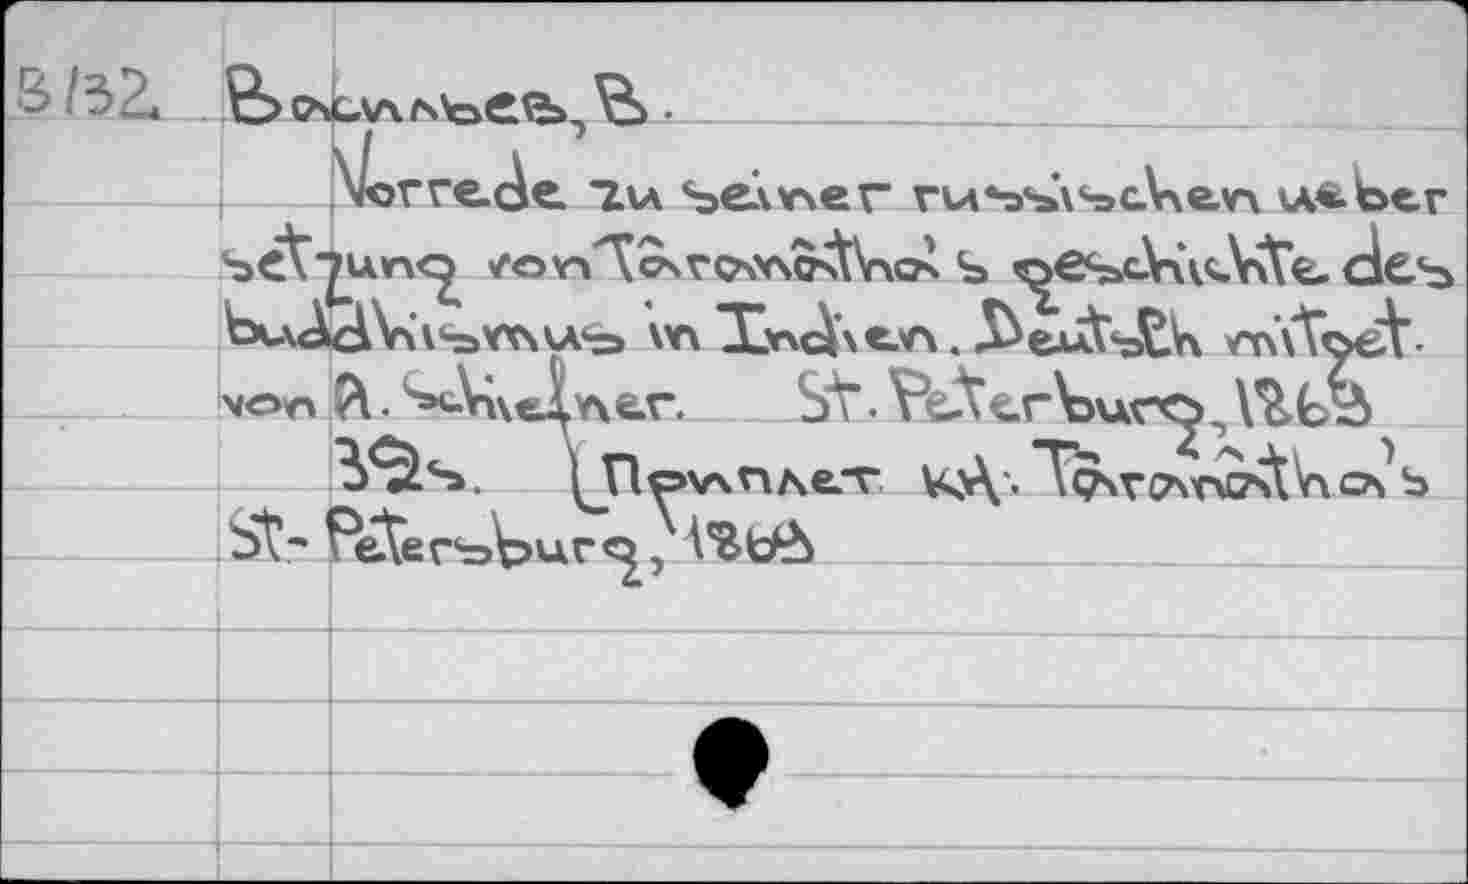 B/32. Васильев, В.
Vorrede zu seiner russischen ueber
setzung von Tāranātha's geschichte des
buddhismus in Indien. Deutsch mitget.
von A. Schiefner. St. Peterburg, 1869
32s. [Приплет к: Tāranātha's
St- Petersburg, 1869